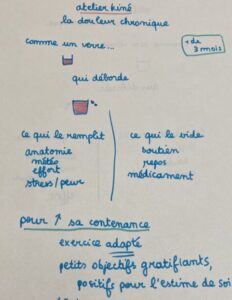 atelier kiné
la douleur chronique
comme un verre...
+ de
3 mois
qui déborde
ce qui le remplit
anatomie
météo
effort
stress/peur
ce qui le vide
soutien
repos
médicament
pour ↑ sa contenance
exercice adapté
petits objectifs gratifiants,
positifs pour l'estime de soi